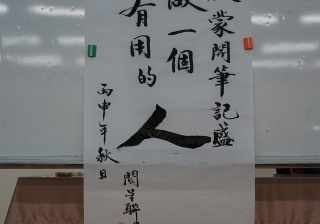 蒙開筆記盛
做一個
有用的
人
丙申年秋日